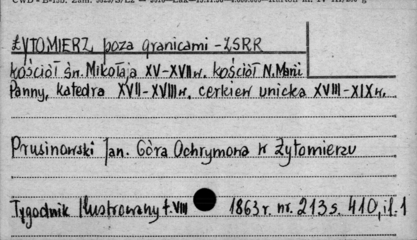 ŻYTOMIERZ, poza granicami - ZSRR
kościół śn. Mikołaja XV-XVII w. kościół N. Marii
Panny, katedra XVII-XVIII w, cerkiew unicka XVIII-XIX w.
Prusinowski Jan. Góra Ochrymowa w Żytomierzu
Tygodnik Ilustrowany t. VIII 1863 r. nr. 213 s. 410, il. 1